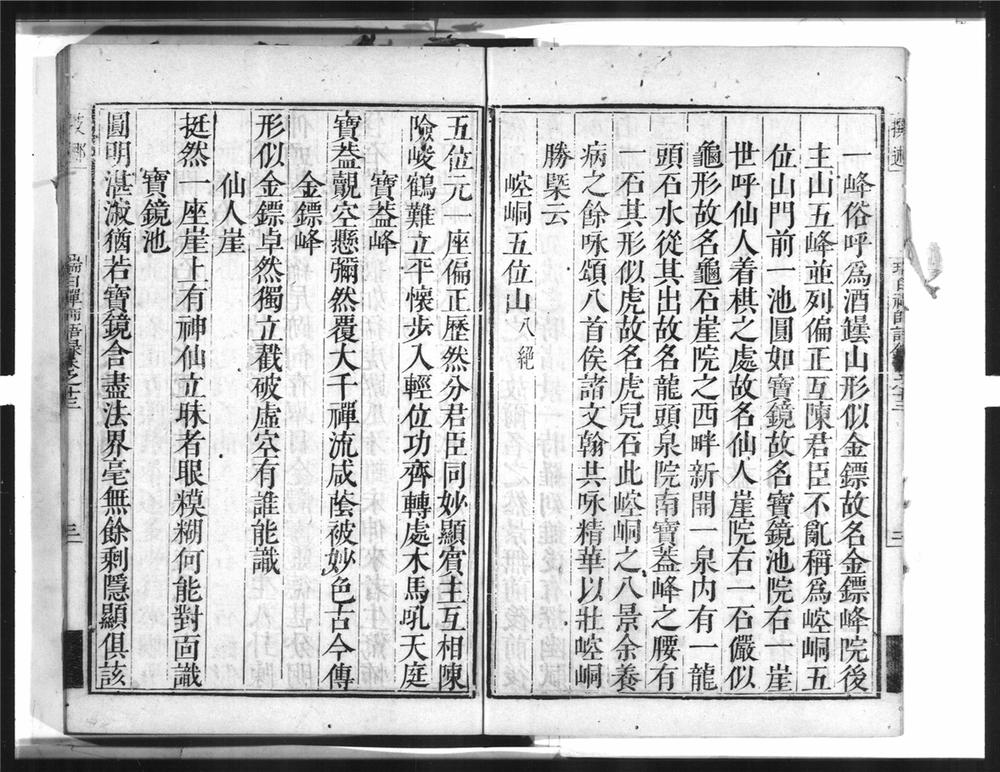 一峰俗呼爲酒罎山形似金鏢故名金鏢峰院後
主山五峰並列偏正互陳君臣不亂稱爲崆峒五
位山門前一池圓如寶鏡故名寶鏡池院右一崖
世呼仙人着棋之處故名仙人崖院右一石儼似
龜形故名龜石崖院之西畔新開一泉內有一龍
頭石水從其出故名龍頭泉院南寶葢峰之腰有
一石其形似虎故名虎兒石此崆峒之八景余養
病之餘咏頌八首俟諸文翰共咏精華以壯崆峒
勝槩云
崆峒五位山八絕
五位元一座偏正歷然分君臣同妙顯賓主互相陳
險峻鶴難立平懷步入輕位功齊轉處木馬吼天庭
寶葢峰
寶葢覿空懸彌然覆大千禪流咸廕被妙色古今傳
金鏢峰
形似金鏢卓然獨立戳破虛空有誰能識
仙人崖
挺然一座崖上有神仙立眛者眼糢糊何能對面識
寶鏡池
圓明湛㴋猶若寶鏡含盡法界毫無餘剩隱顯俱該
端白禪師語錄卷之十三
三